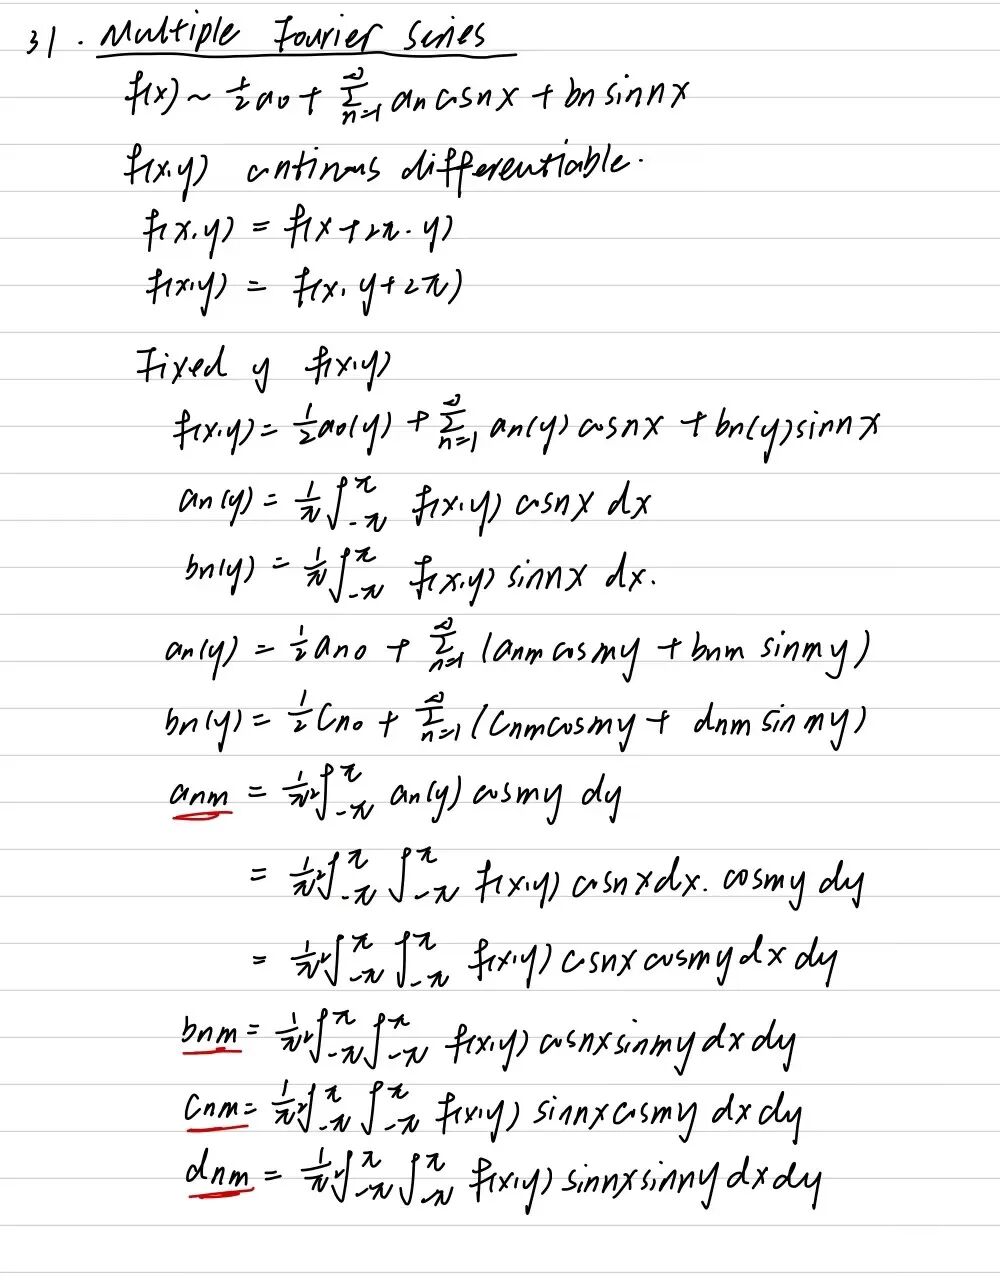 31. Multiple Fourier Series
f(x) ~ 1/2 a0 + ∑_{n=1}^{∞} an cosnx + bn sinnx
f(x,y) continous differentiable.
f(x,y) = f(x+2π, y)
f(x,y) = f(x, y+2π)
Fixed y f(x,y)
f(x,y) = 1/2 a0(y) + ∑_{n=1}^{∞} an(y) cosnx + bn(y) sinnx
an(y) = 1/π ∫_{-π}^{π} f(x,y) cosnx dx
bn(y) = 1/π ∫_{-π}^{π} f(x,y) sinnx dx.
an(y) = 1/2 an0 + ∑_{n=1}^{∞} (anm cosmy + bnm sinmy)
bn(y) = 1/2 Cn0 + ∑_{n=1}^{∞} (Cnm cosmy + dnm sinmy)
anm = 1/π² ∫_{-π}^{π} an(y) cosmy dy
= 1/π² ∫_{-π}^{π} ∫_{-π}^{π} f(x,y) cosnx dx. cosmy dy
= 1/π² ∫_{-π}^{π} ∫_{-π}^{π} f(x,y) cosnx cosmy dx dy
bnm = 1/π² ∫_{-π}^{π} ∫_{-π}^{π} f(x,y) cosnx sinmy dx dy
Cnm = 1/π² ∫_{-π}^{π} ∫_{-π}^{π} f(x,y) sinnx cosmy dx dy
dnm = 1/π² ∫_{-π}^{π} ∫_{-π}^{π} f(x,y) sinnx sinny dx dy